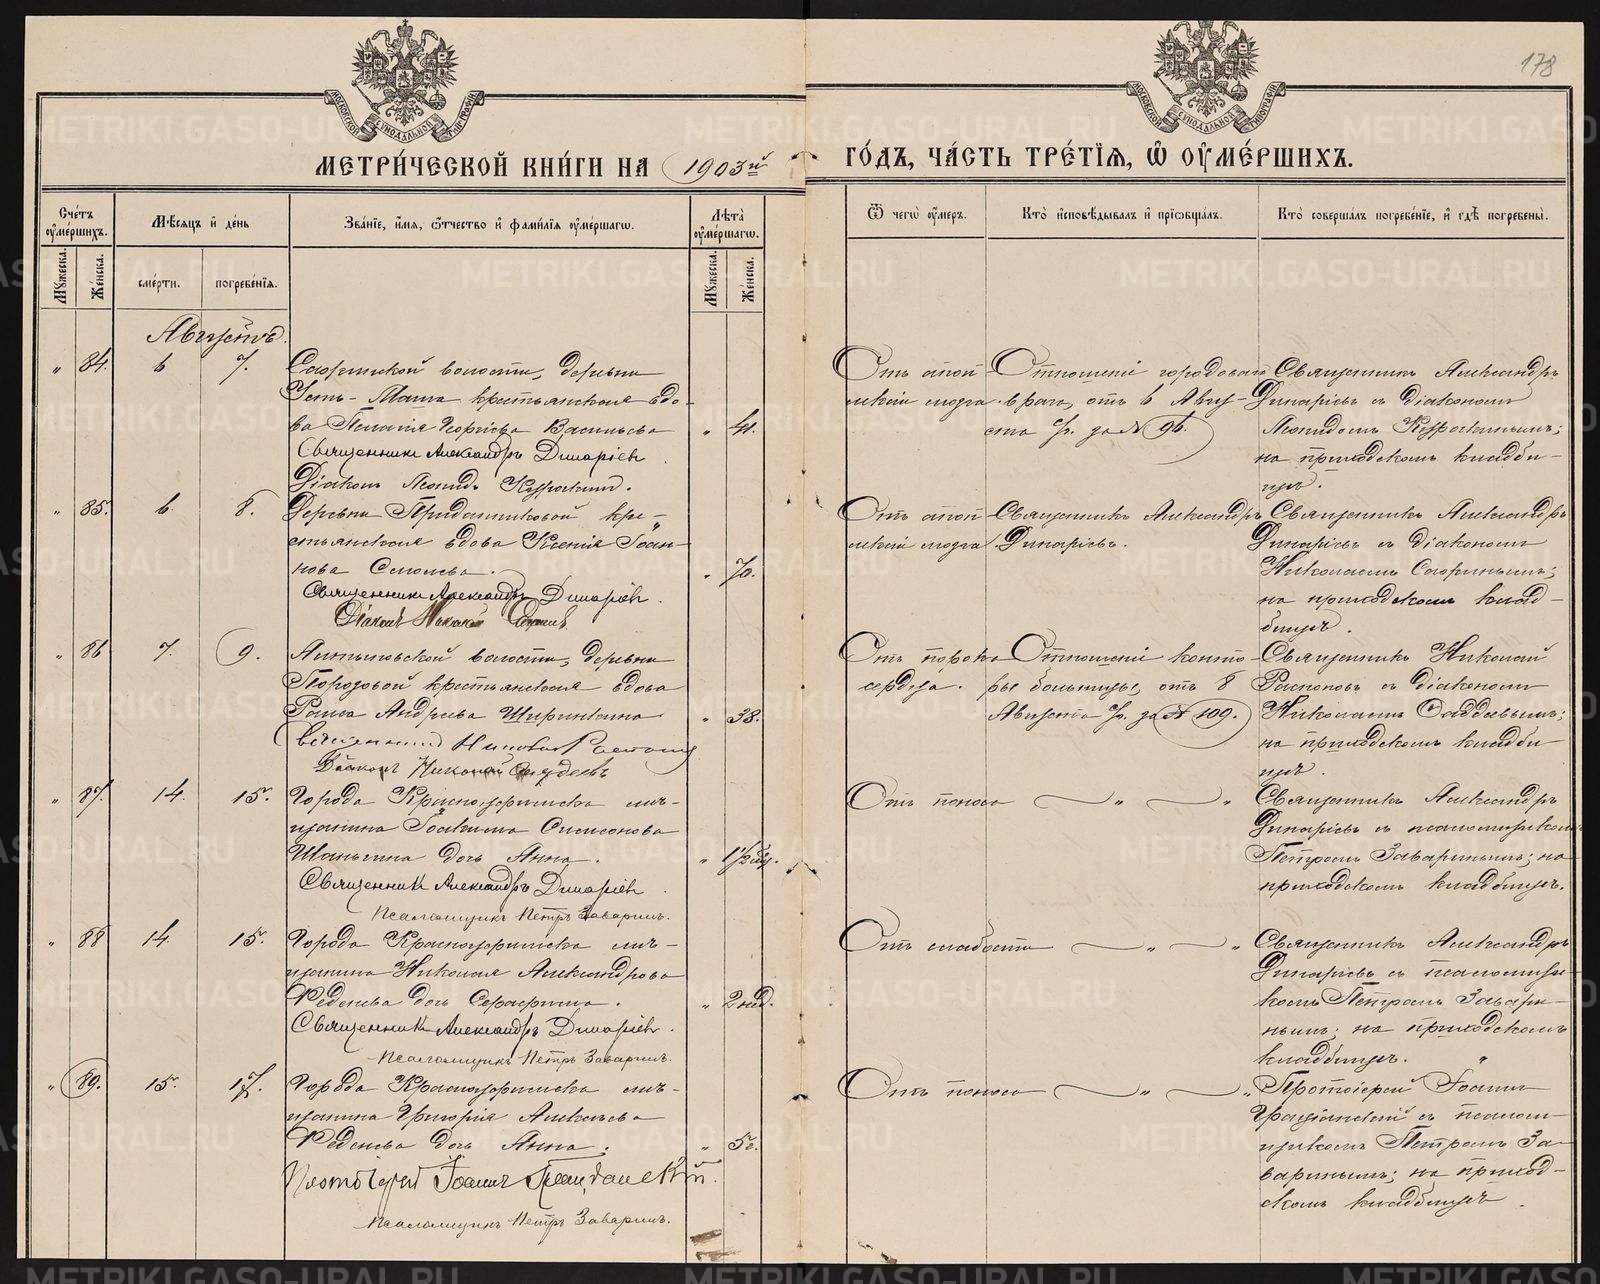 178
МОСКОВСКОЙ СѴНОДАЛЬНОЙ ТИПОГРАФІИ
МОСКОВСКОЙ СѴНОДАЛЬНОЙ ТИПОГРАФІИ
МЕТРИ́ЧЕСКОЙ КНИ́ГИ НА 1903й
ГО́ДЪ, ЧА́СТЬ ТРЕ́ТІЯ, Ѡ ОУМЕ́РШИХЪ.
Сче́тъ оумéршихъ.
Мужеска.
Же́нска.
Мѣ́сяцъ и де́нь
сме́рти.
погребе́нїя.
Зва́нїе, и́мя, ѻ́тчество и фами́лїя оумéршагѡ.
Лѣта̀ оумéршагѡ.
Мужеска.
Же́нска.
Ѿ чегѡ̀ оу́меръ.
Кто̀ и҆сповѣ́дывалъ и҆ прїѡбща́лъ.
Кто̀ соверша́лъ погребе́нїе, и҆ гдѣ̀ погребены̀.
Августъ.
" 84. 6 7.
Саргинской волости, деревни
Усть-Маша крестьянская вдо-
ва Пелагія Георгіева Васильева " 41.
Священникъ Александръ Динаріевъ.
Діаконъ Леонидъ
От апоп-
лексіи мозга.
Отношеніе городоваго
врача, отъ 6 Авгу-
ста с/г. за № 96.
Священникъ Александръ
Динаріевъ съ діакономъ
Леонидомъ
на приходскомъ кладби-
щѣ.
" 85. 6. 8.
Деревни Приданниковой кре-
стьянская вдова Ксенія Іоан-
нова " 70.
Священникъ Александръ Динаріевъ.
Діаконъ Николай
От апоп-
лексіи мозга.
Священникъ Александръ
Динаріевъ.
Священникъ Александръ
Динаріевъ съ діакономъ
Николаемъ
на приходскомъ клад-
бищѣ.
" 86 7. 9.
волости, деревни
крестьянская вдова
Раиса Андреева Ширинкина " 38.
Священникъ Николай
Діаконъ Николай
Отъ порока
сердца.
Отношеніе конто-
ры больницы, отъ 8
Августа с/г. за № 109.
Священникъ Николай
съ діакономъ
Николаемъ
на приходскомъ кладби-
щѣ.
" 87. 14. 15.
Города Красноуфимска мѣ-
щанина Іоакима Симеонова
Шаньгина дочь Анна. " 1½ мѣс.
Священникъ Александръ Динаріевъ.
Псаломщикъ Петръ Заваринъ.
Отъ поноса " "
Священникъ Александръ
Динаріевъ съ псаломщикомъ
Петромъ Завариным; на
приходскомъ кладбищѣ.
" 88 14. 15.
Города Красноуфимска мѣ-
щанина Николая Александрова
дочь Серафима. " 2 нед.
Священникъ Александръ Динаріевъ.
Псаломщикъ Петръ Заваринъ.
Отъ слабости " "
Священникъ Александръ
Динаріевъ съ псаломщи-
комъ Петромъ Завари-
нымъ; на приходскомъ
кладбищѣ.
" 89. 15. 17.
Города Красноуфимска мѣ-
щанина Григорія Алексѣева
дочь Анна. " 5 г.
Протоіерей Іоаннъ
Псаломщикъ Петръ Заваринъ.
Отъ поноса " "
Протоіерей Іоаннъ
съ псалом-
щикомъ Петромъ За-
вариным; на приход-
скомъ кладбищѣ.
METRIKI.GASO-URAL.RU